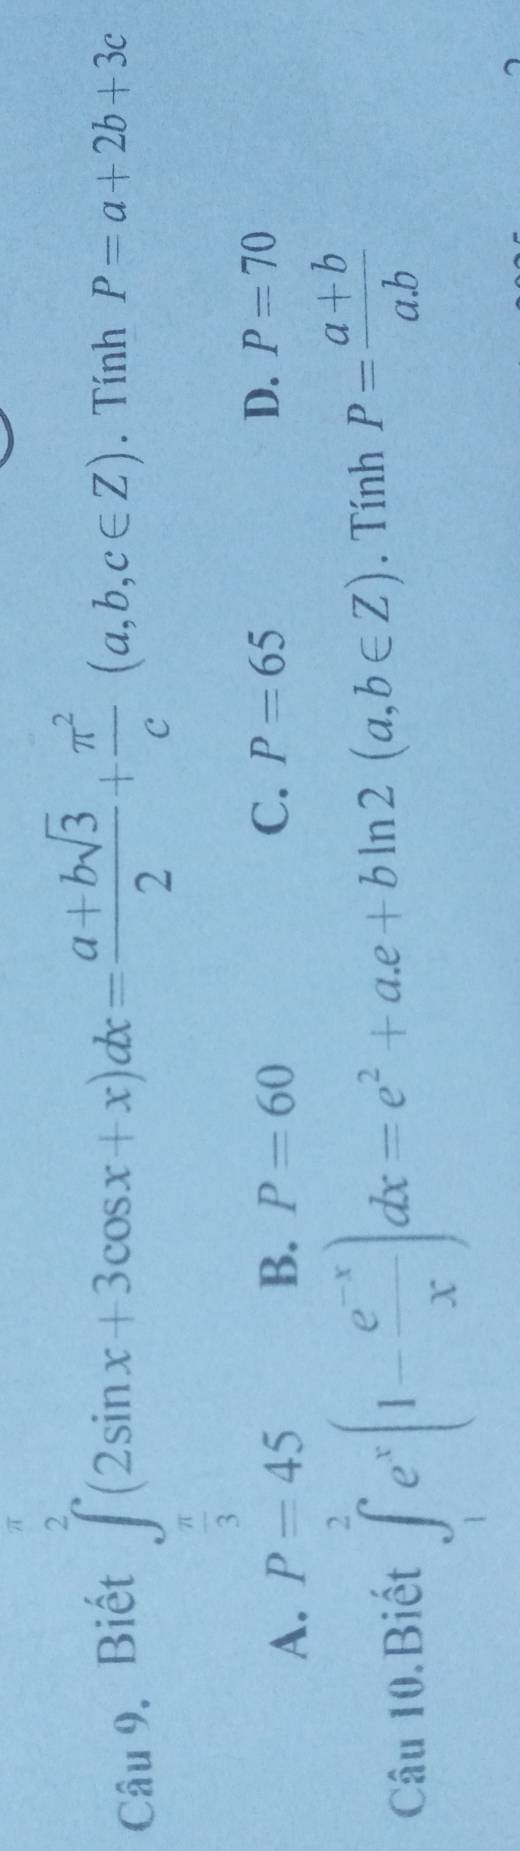 Câu 9. Biết $\int_{\frac{\pi}{3}}^{\frac{\pi}{2}} (2\sin x + 3\cos x + x)dx = \frac{a + b\sqrt{3}}{2} + \frac{\pi^2}{c}$ (a, b, c ∈ Z). Tính P = a + 2b + 3c
A. P = 45 B. P = 60 C. P = 65 D. P = 70
Câu 10. Biết $\int_{1}^{2} e^x \left(1 - \frac{e^{-x}}{x}\right)dx = e^2 + a.e + b\ln 2$ (a, b ∈ Z). Tính $P = \frac{a + b}{a.b}$